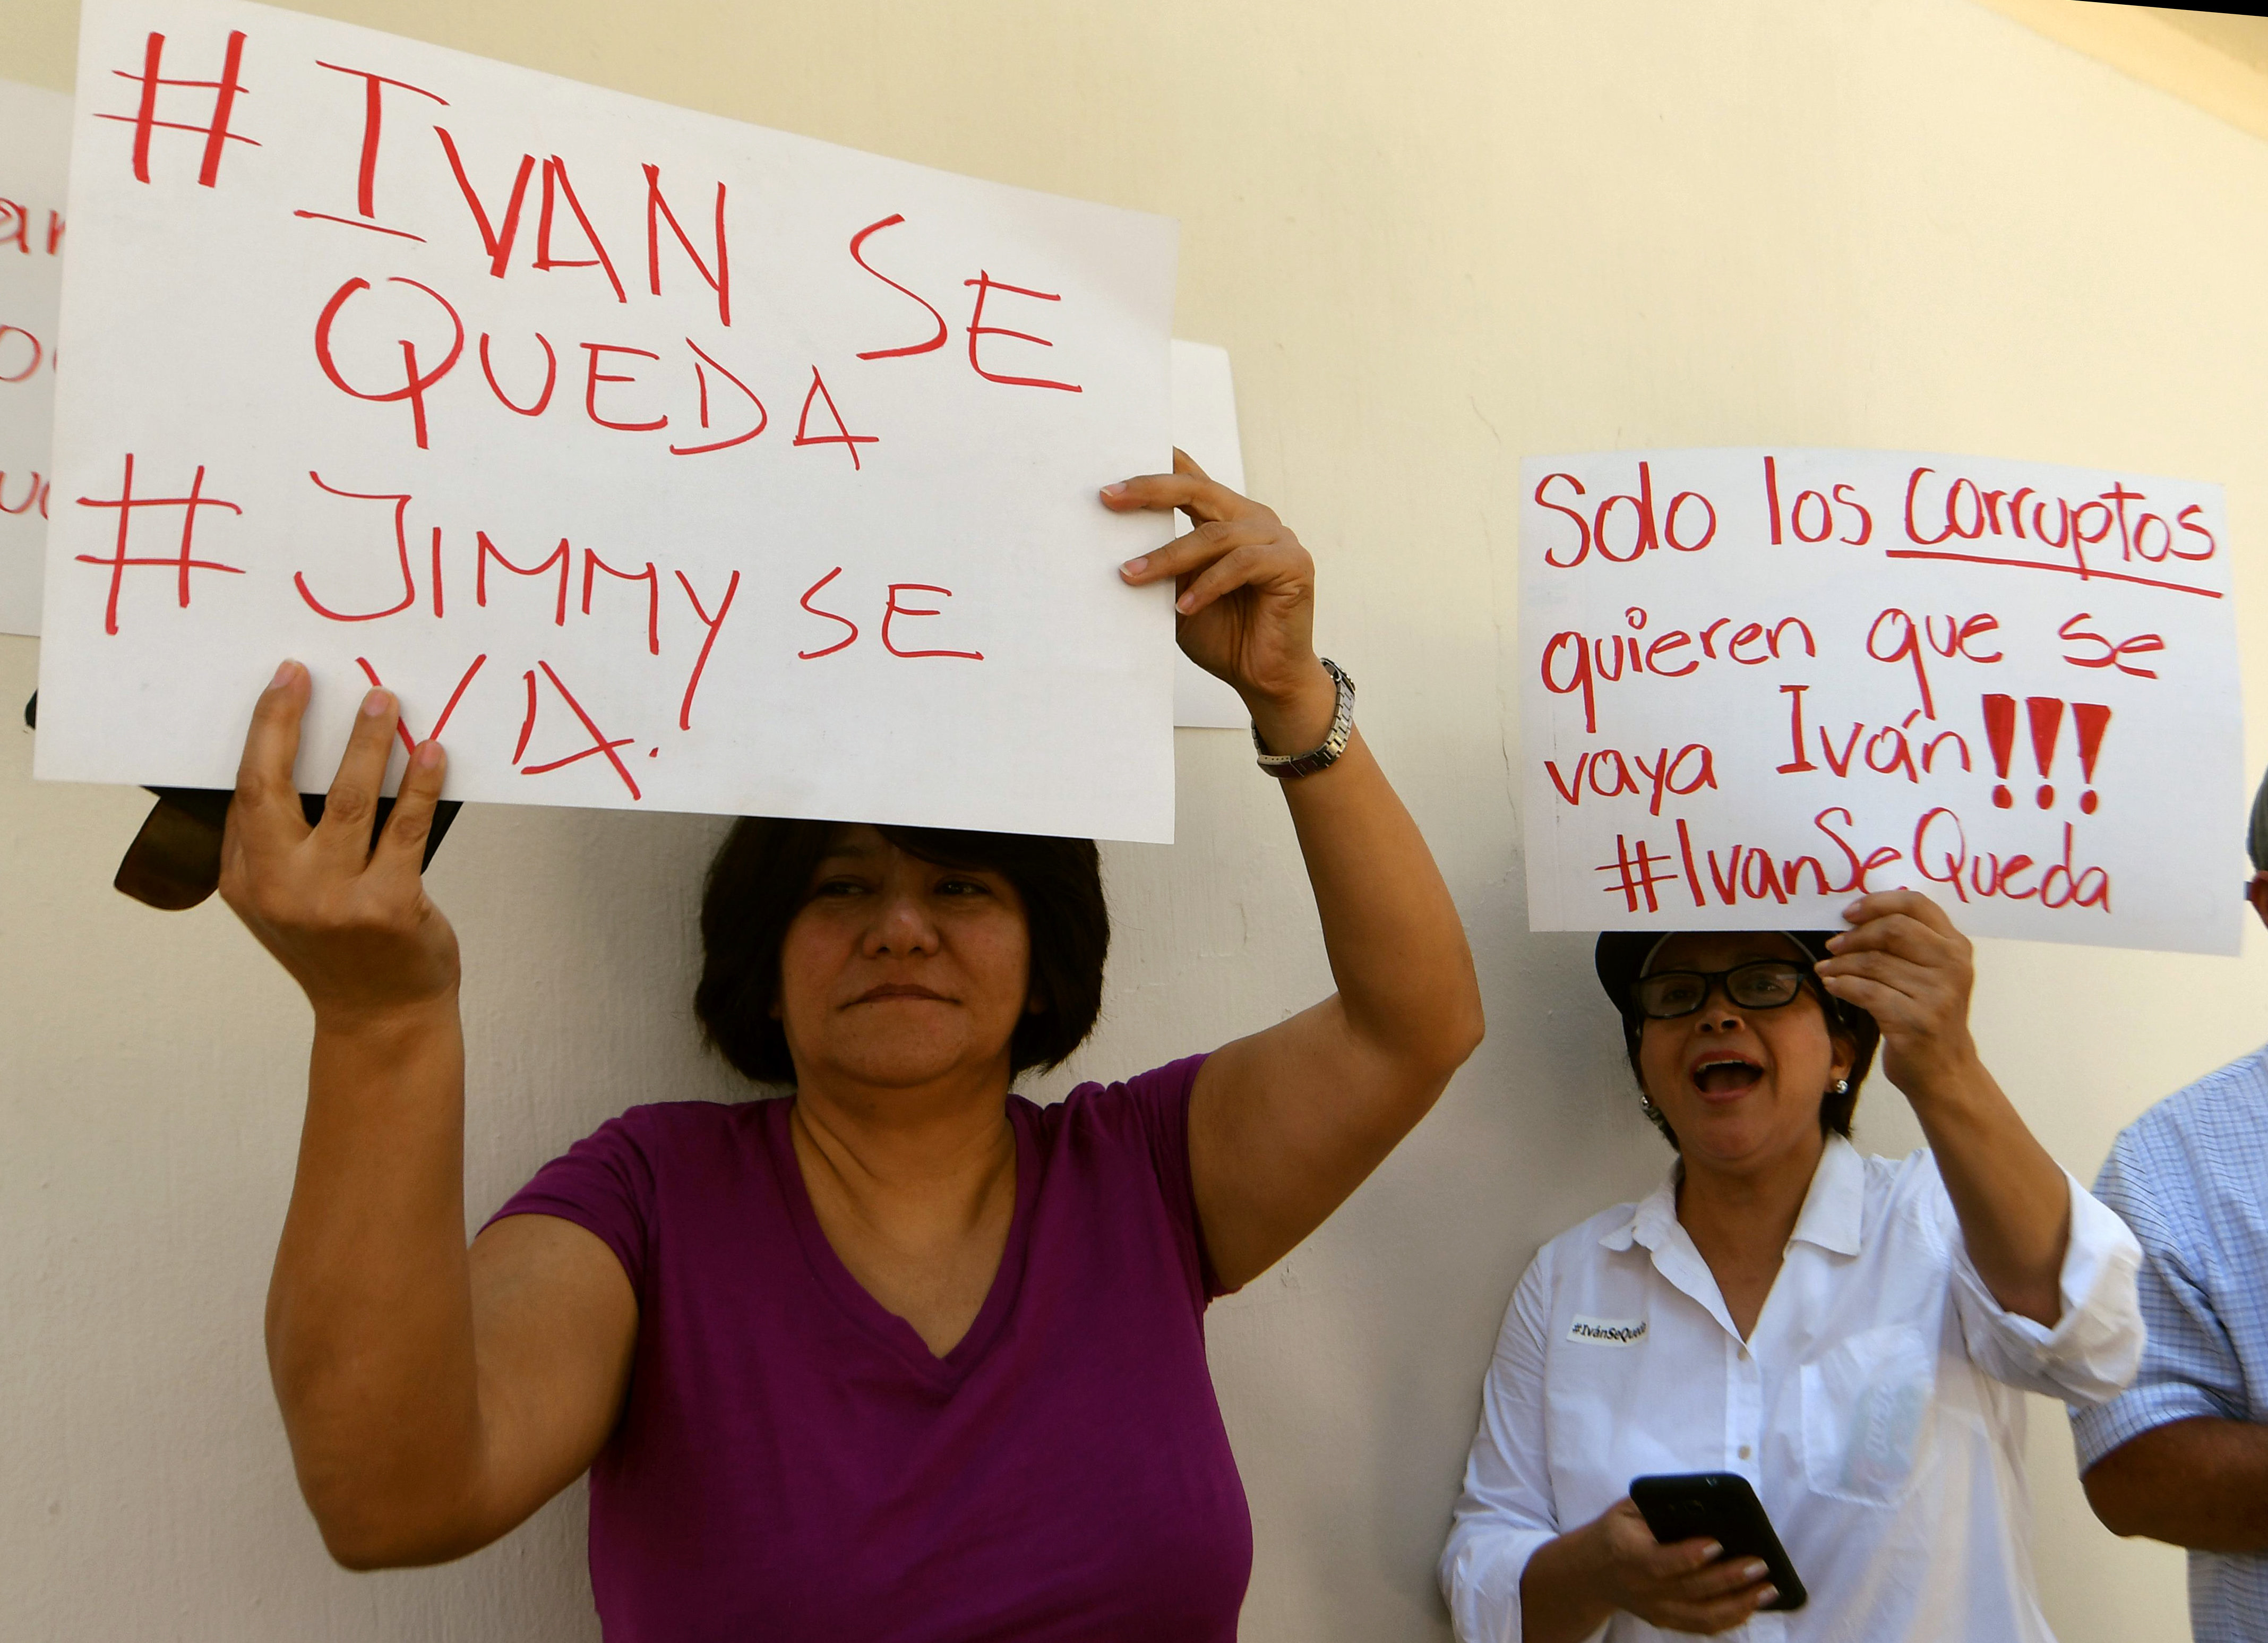 # IVAN SE
QUEDA
# JIMMY SE
VA.
Solo los corruptos
quieren que se
vaya Iván!!!
#IvanSeQueda
#IvánSeQueda